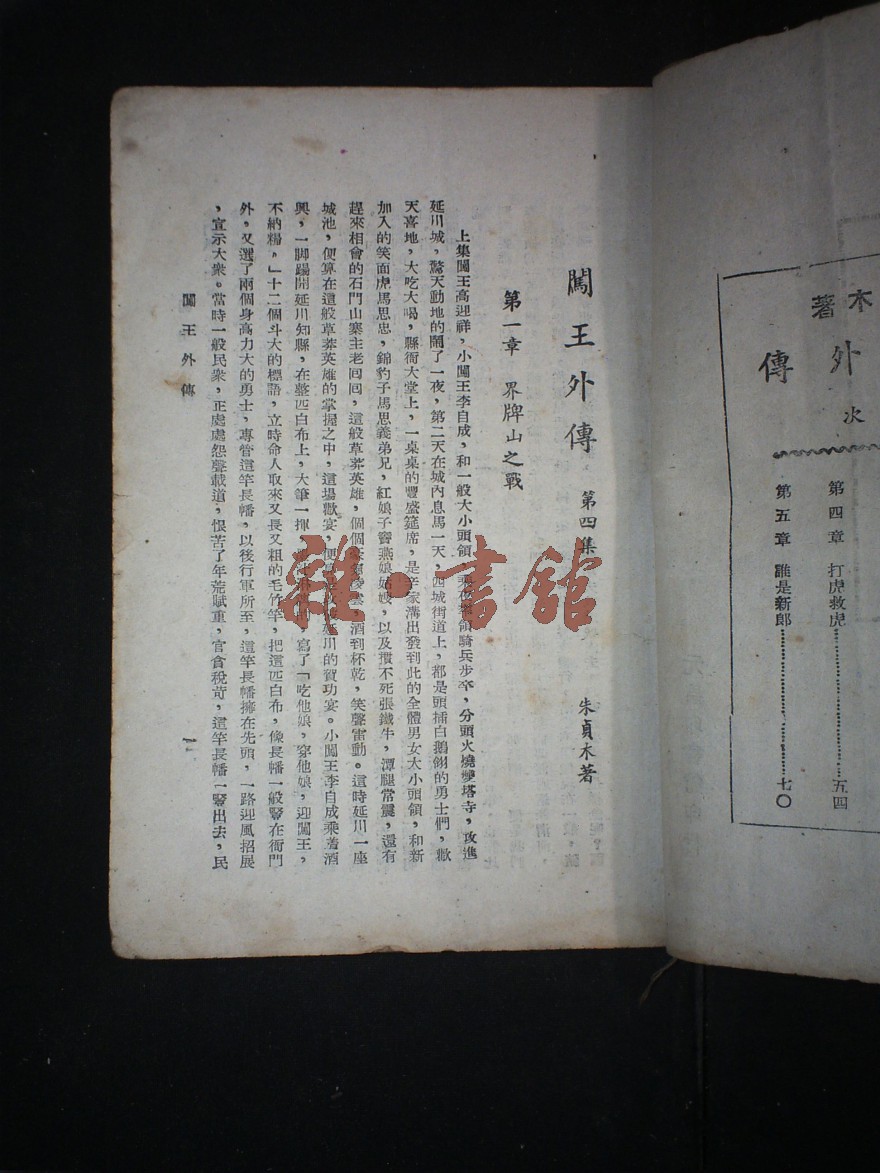 本著
外傳
次
第四章 打虎救虎…………………五四
第五章 誰是新郎…………………七〇
闖王外傳 第四集 朱貞木著
第一章 界牌山之戰
上集闖王高迎祥，小闖王李自成，和一般大小頭領，乘夜率領騎兵步卒，分頭火燒雙塔寺，攻進
延川城，驚天動地的鬧了一夜，第二天在城內息馬一天，四城街道上，都是頭插白鵝翎的勇士們，歡
天喜地，大吃大喝，縣衙大堂上，一桌桌的豐盛筵席，是辛家溝出發到此的全體男女大小頭領，和新
加入的笑面虎馬思忠，錦豹子馬思義弟兄，紅娘子竇燕娘姑嫂，以及攢不死張鐵牛，潭腿常震，還有
趕來相會的石門山寨主老囘囘，這般草莽英雄，個個，酒到杯乾，笑聲雷動。這時延川一座
城池，便算在這般草莽英雄的掌握之中，這場歡宴，便延川的賀功宴。小闖王李自成乘着酒
興，一脚踢開延川知縣，在整匹白布上，大筆一揮，寫了「吃他娘，穿他娘，迎闖王，
不納糧。」十二個斗大的標語，立時命人取來又長又粗的毛竹竿，把這匹白布，像長幡一般豎在衙門
外，又選了兩個身高力大的勇士，專管這竿長幡，以後行軍所至，這竿長幡擁在先頭，一路迎風招展
，宣示大衆。當時一般民衆，正處處怨聲載道，恨苦了年荒賦重，官貪稅苛，這竿長幡一豎出去，民
闖王外傳
一
雜·書館